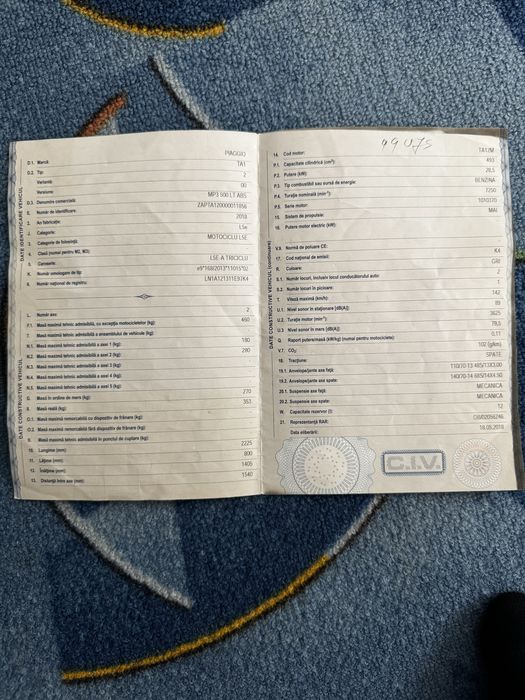 DATE IDENTIFICARE VEHICUL
D.1. Marca: PIAGGIO
D.2. Tip: TA1
Varianta: 2
Versiune: 00
D.3. Denumire comercială: MP3 500 LT ABS
E. Număr de identificare: ZAPTA120000011856
An fabricație: 2018
2. Categorie: L5e
3. Categorie de folosință: MOTOCICLU L5E
4. Clasă (numai pentru M2, M3):
5. Caroserie: L5E-A TRICICLU
K. Număr omologare de tip: e9*168/2013*11015*02
6. Număr național de registru: LN1A121311E97K4
DATE CONSTRUCTIVE VEHICUL
L. Număr axe: 2
F.1. Masă maximă tehnic admisibilă, cu excepția motocicletelor (kg): 460
7. Masă maximă tehnic admisibilă a ansamblului de vehicule (kg):
N.1. Masă maximă tehnic admisibilă a axei 1 (kg): 180
N.2. Masă maximă tehnic admisibilă a axei 2 (kg): 280
N.3. Masă maximă tehnic admisibilă a axei 3 (kg):
N.4. Masă maximă tehnic admisibilă a axei 4 (kg):
N.5. Masă maximă tehnic admisibilă a axei 5 (kg):
G. Masă în ordine de mers (kg): 270
8. Masă reală (kg): 353
O.1. Masă maximă remorcabilă cu dispozitiv de frânare (kg):
O.2. Masă maximă remorcabilă fără dispozitiv de frânare (kg):
9. Masă maximă tehnic admisibilă în punctul de cuplare (kg):
10. Lungime (mm): 2225
11. Lățime (mm): 800
12. Înălțime (mm): 1405
13. Distanță între axe (mm): 1540
DATE CONSTRUCTIVE VEHICUL (continuare)
14. Cod motor: TA12M
P.1. Capacitate cilindrică (cm³): 493
P.2. Putere (kW): 28,5
P.3. Tip combustibil sau sursă de energie: BENZINA
P.4. Turație nominală (min⁻¹): 7250
P.5. Serie motor: 1010170
15. Sistem de propulsie: MAI
16. Putere motor electric (kW):
V.9. Norma de poluare CE:
17. Cod național de emisii: K4
R. Culoare: GRI
S.1. Număr locuri, inclusiv locul conducătorului auto: 2
S.2. Număr locuri în picioare:
T. Viteză maximă (km/h): 142
U.1. Nivel sonor în staționare (dB(A)): 89
U.2. Turație motor (min⁻¹): 3625
U.3. Nivel sonor în mers (dB(A)): 79,5
Q. Raport putere/masă (kW/kg) (numai pentru motociclete): 0,11
V.7. CO₂: 102 (g/km)
18. Tracțiune: SPATE
19.1. Anvelopante axa față: 110/70-13 48S/13X3.00
19.2. Anvelopante axe spate: 140/70-14 68S/14X4.50
20.1. Suspensie axa față: MECANICA
20.2. Suspensie axe spate: MECANICA
W. Capacitate rezervor (l): 12
21. Reprezentanță RAR: CJ8/02056246
Data eliberării: 18.05.2018
C.I.V.